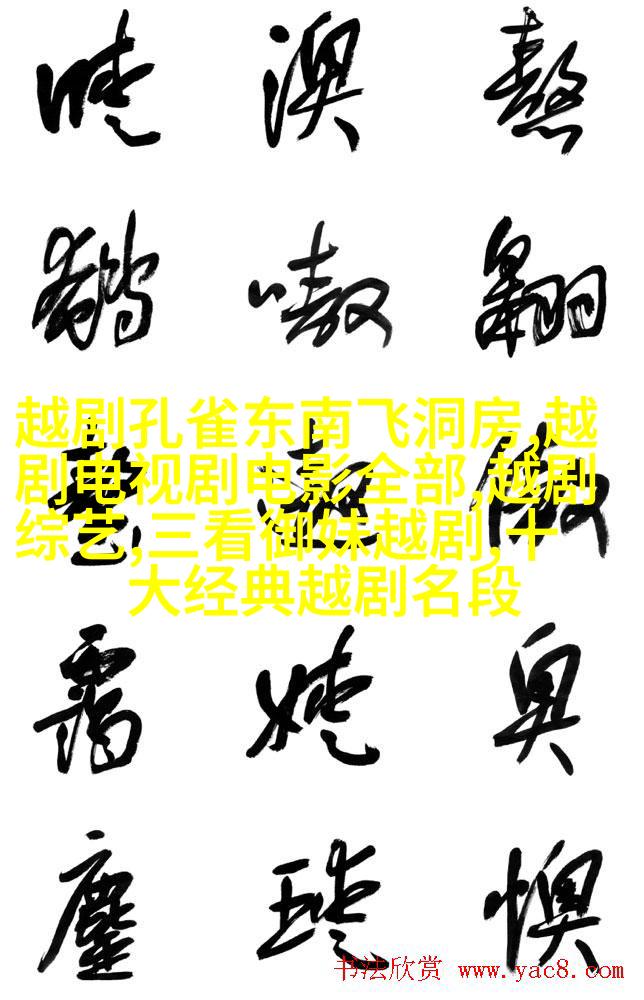 暧 澳
嗷 翱
越剧孔雀东南飞洞房,越
剧电视剧电影全部,越剧
综艺,三看御妹越剧,十
大经典越剧名段
遨 傲
霭 嫒 奥
鏖 瑷 懊
书法欣赏 www.yac8.com